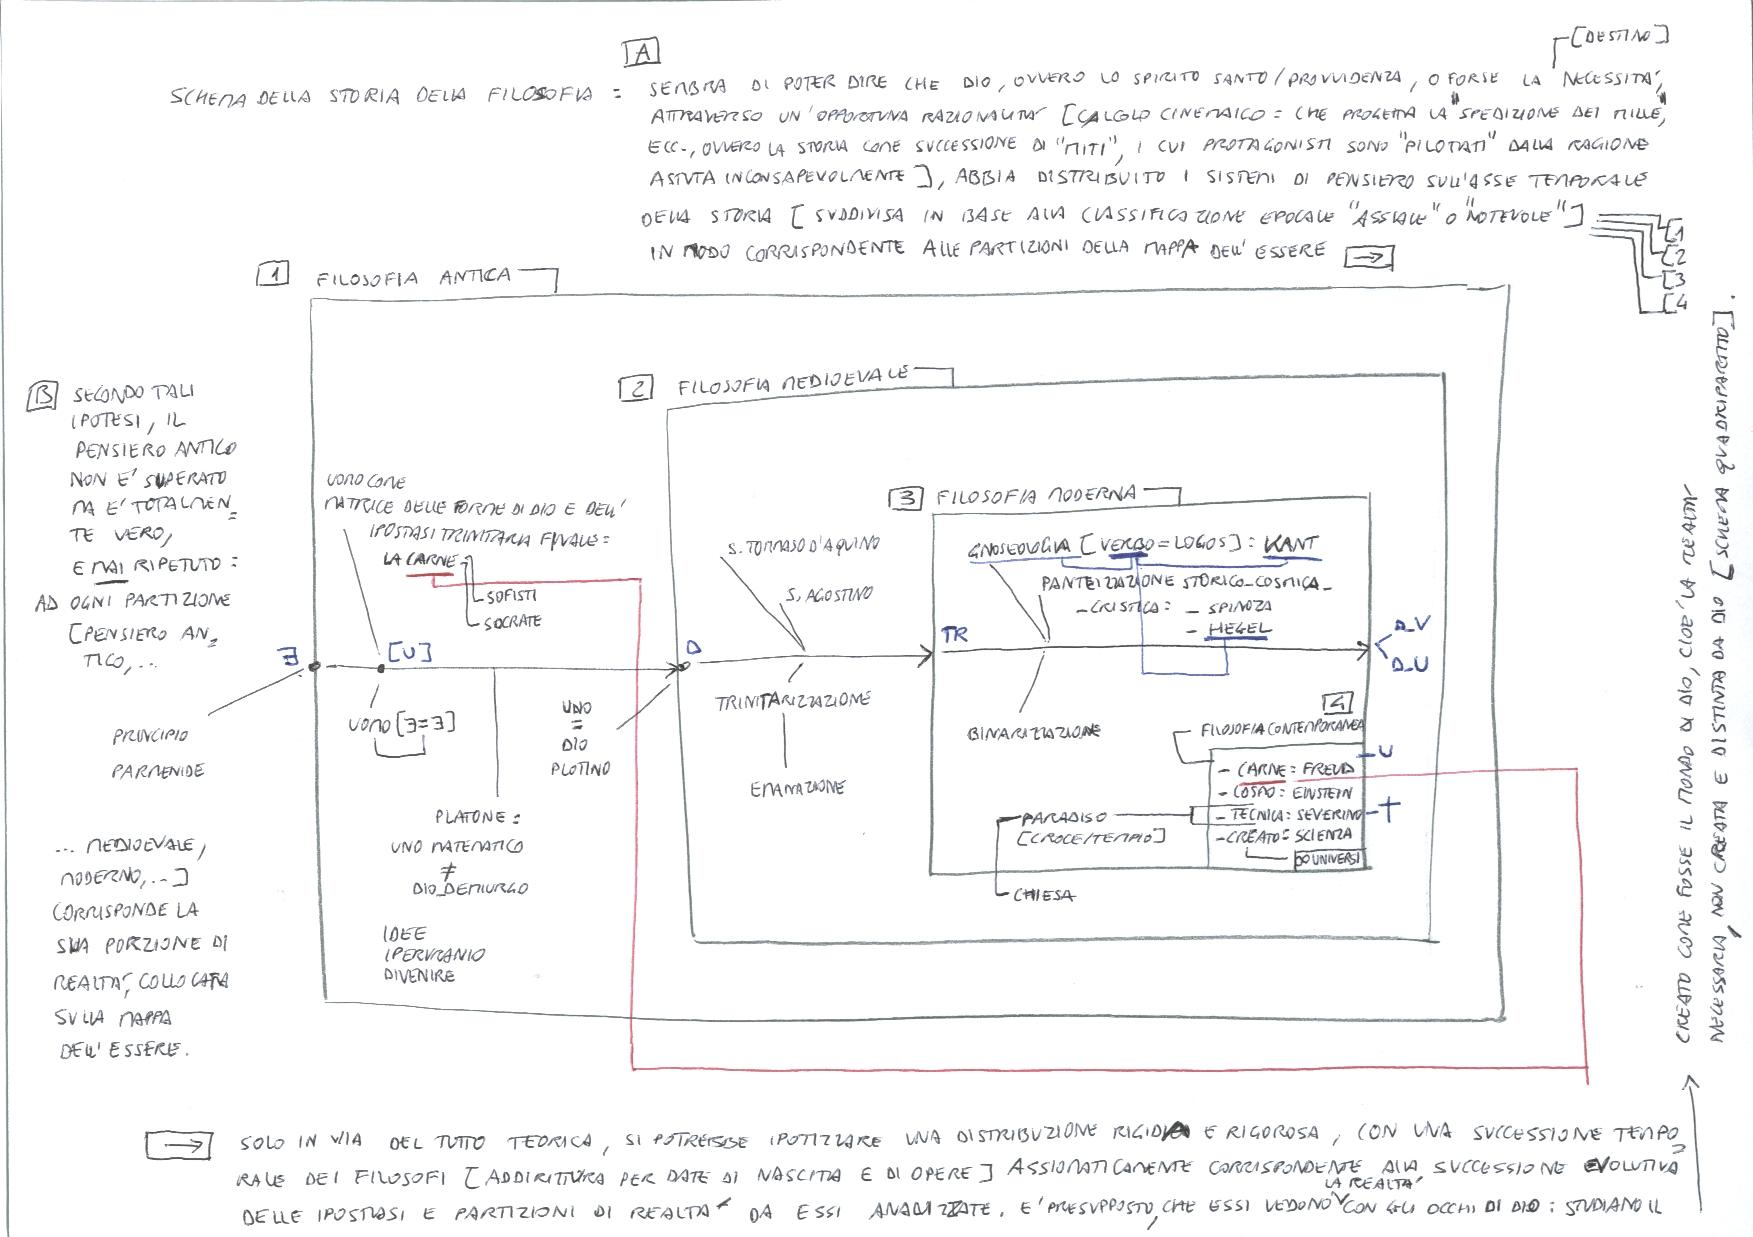 [DESTINO]
A
SCHEMA DELLA STORIA DELLA FILOSOFIA =
SEMBRA DI POTER DIRE CHE DIO, OVVERO LO SPIRITO SANTO/PROVVIDENZA, O FORSE LA NECESSITA',
ATTRAVERSO UN'OPPORTUNA RAZIONALITA' [CALCOLO CINEMAICO = CHE PROGETTA LA "SPEDIZIONE DEI MILLE",
ECC., OVVERO LA STORIA COME SUCCESSIONE DI "MITI", I CUI PROTAGONISTI SONO "PILOTATI" DALLA RAGIONE
ASTUTA INCONSAPEVOLMENTE], ABBIA DISTRIBUITO I SISTEMI DI PENSIERO SULL'ASSE TEMPORALE
DELLA STORIA [SUDDIVISA IN BASE ALLA CLASSIFICAZIONE EPOCALE "ASSIALE" O "NOTEVOLE"]
IN MODO CORRISPONDENTE ALLE PARTIZIONI DELLA MAPPA DELL'ESSERE →
[1
[2
[3
[4
1 FILOSOFIA ANTICA
2 FILOSOFIA MEDIOEVALE
3 FILOSOFIA MODERNA
B SECONDO TALI
IPOTESI, IL
PENSIERO ANTICO
NON E' SUPERATO
MA E' TOTALMEN=
TE VERO,
E MAI RIPETUTO:
AD OGNI PARTIZIONE
[PENSIERO AN=
TICO,...
PRINCIPIO
PARMENIDE
... MEDIOEVALE,
MODERNO,...]
CORRISPONDE LA
SUA PORZIONE DI
REALTA', COLLOCATA
SULLA MAPPA
DELL'ESSERE.
UOMO COME
MATRICE DELLE FORME DI DIO E DELL'
IPOSTASI TRINITARIA FINALE =
LA CARNE
SOFISTI
SOCRATE
∃
[U]
UOMO [∃=∃]
PLATONE:
UNO MATEMATICO
≠
DIO_DEMIURGO
IDEE
IPERURANIO
DIVENIRE
UNO
=
DIO
PLOTINO
D
S. TOMMASO D'AQUINO
S. AGOSTINO
TRINITARIZZAZIONE
EMANAZIONE
TR
GNOSEOLOGIA [VERBO=LOGOS]: KANT
PANTEIZZAZIONE STORICO_COSMICA_
_CRISTICA: - SPINOZA
- HEGEL
D_V
D_U
BINARIZZAZIONE
4
FILOSOFIA CONTEMPORANEA
- CARNE: FREUD
- U
- COSMO: EINSTEIN
- TECNICA: SEVERINO
- T
- CREATO: SCIENZA
∞ UNIVERSI
PARADISO
[CROCE/TEMPIO]
CHIESA
→ SOLO IN VIA DEL TUTTO TEORICA, SI POTREBBE IPOTIZZARE UNA DISTRIBUZIONE RIGIDA E RIGOROSA, CON UNA SUCCESSIONE TEMPO=
RALE DEI FILOSOFI [ADDIRITTURA PER DATE DI NASCITA E DI OPERE] ASSIOMATICAMENTE CORRISPONDENTE ALLA SUCCESSIONE EVOLUTIVA
DELLE IPOSTASI E PARTIZIONI DI REALTA' DA ESSI ANALIZZATE. E' PRESUPPOSTO, CHE ESSI VEDONO LA REALTA' CON GLI OCCHI DI DIO: STUDIANO IL
CREATO COME FOSSE IL MONDO DI DIO, CIOE' LA REALTA'
NECESSARIA, NON CREATA E DISTINTA DA DIO [SCHEMA QUADRIPARTITO].